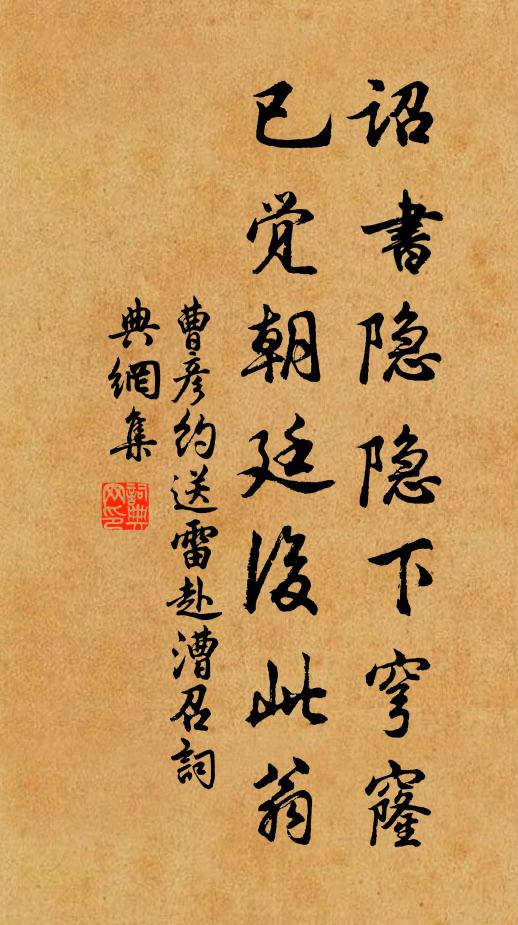 诏書隐隐下穹窿
已觉朝廷後此翁
曹彦约送雷赴漕召詞
典網集
詞典
网印